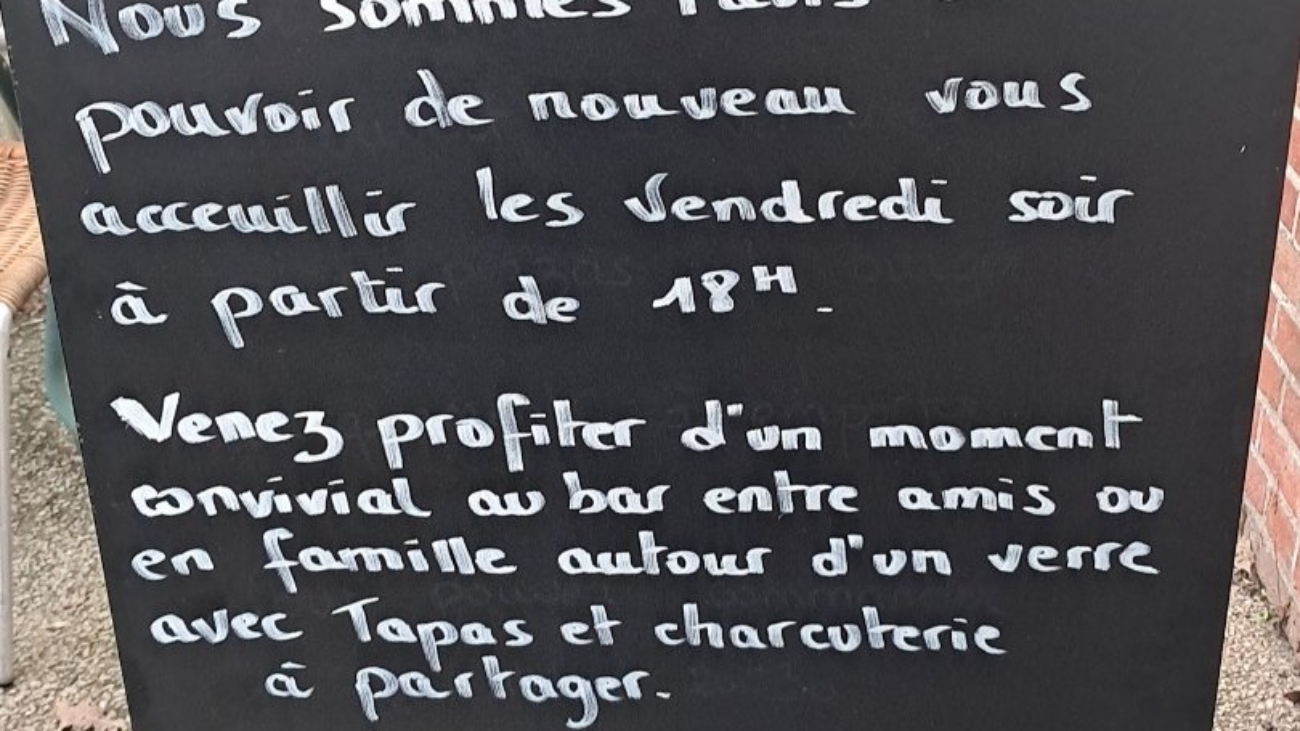 Nous sommes
pouvoir de nouveau vous
acceuillir les Vendredi soir
à partir de 18H.
Venez profiter d'un moment
convivial au bar entre amis ou
en famille autour d'un verre
avec Tapas et charcuterie
à partager.